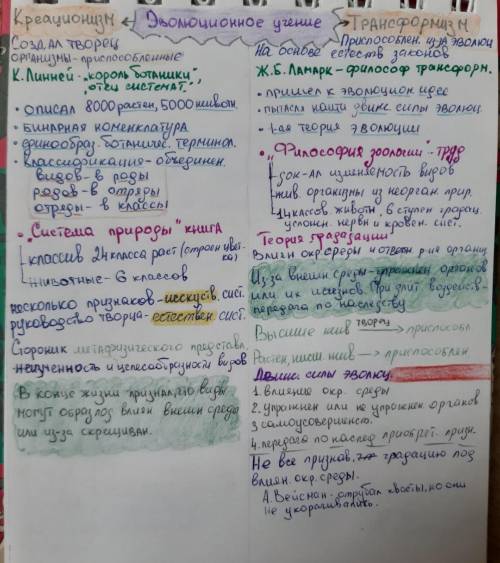 Креационизм ← Эволюционное учение → Трансформизм
Создал творец
организмы-приспособленные
К. Линней-"король ботаники",
"отец системат."
• описал 8000 растен, 5000 животн.
• бинарная номенклатура
• ботаническ. терминол.
• классификация-объединен.
видов-в роды
родов-в отряды
отряды-в классы
• "Система природы" книга
классив 24 класса раст (строен цвет-
ка)
животные-6 классов
несколько признаков-искуств. сист.
руководство творца-естествен. сист.
Стороник метафизического представл.
неизменность и целесообразности видов
В конце жизни признал, что виды
могут образов влиян внешн среды
или из-за скрещиван.
Приспособлен. из-за эволюц
На основе естеств законов
Ж.Б. Ламарк-философ трансформ.
• пришел к эволюцион идее
• пытался найти движ. силы эволюц.
• 1-ая теория эволюции
• "Философия зоологии"-труд
док-ал изменяемость видов
жив. организмы из неорган прир.
14 классов. животн, 6 ступен градац.
усложн. нервн и кровен. сист.
Теория градации
Влиян окр. среды
Из за внешн. среды-упражнен органов
или их исчезнов. При длит воздейств-
передача по наследству
Высшие жив творец → приспособл
Растен, низш жив → приспособлен
Движ. силы эволюц.
1. влияние окр. среды
2. упражнен или не упражнен. органов
3 самоусовершенст.
4. передача по наслед приобрет. призн.
Не все признав. градацию под
влиян. окр. среды.
А. Вейсман-отрубал хвосты, но они
не укорачивались.